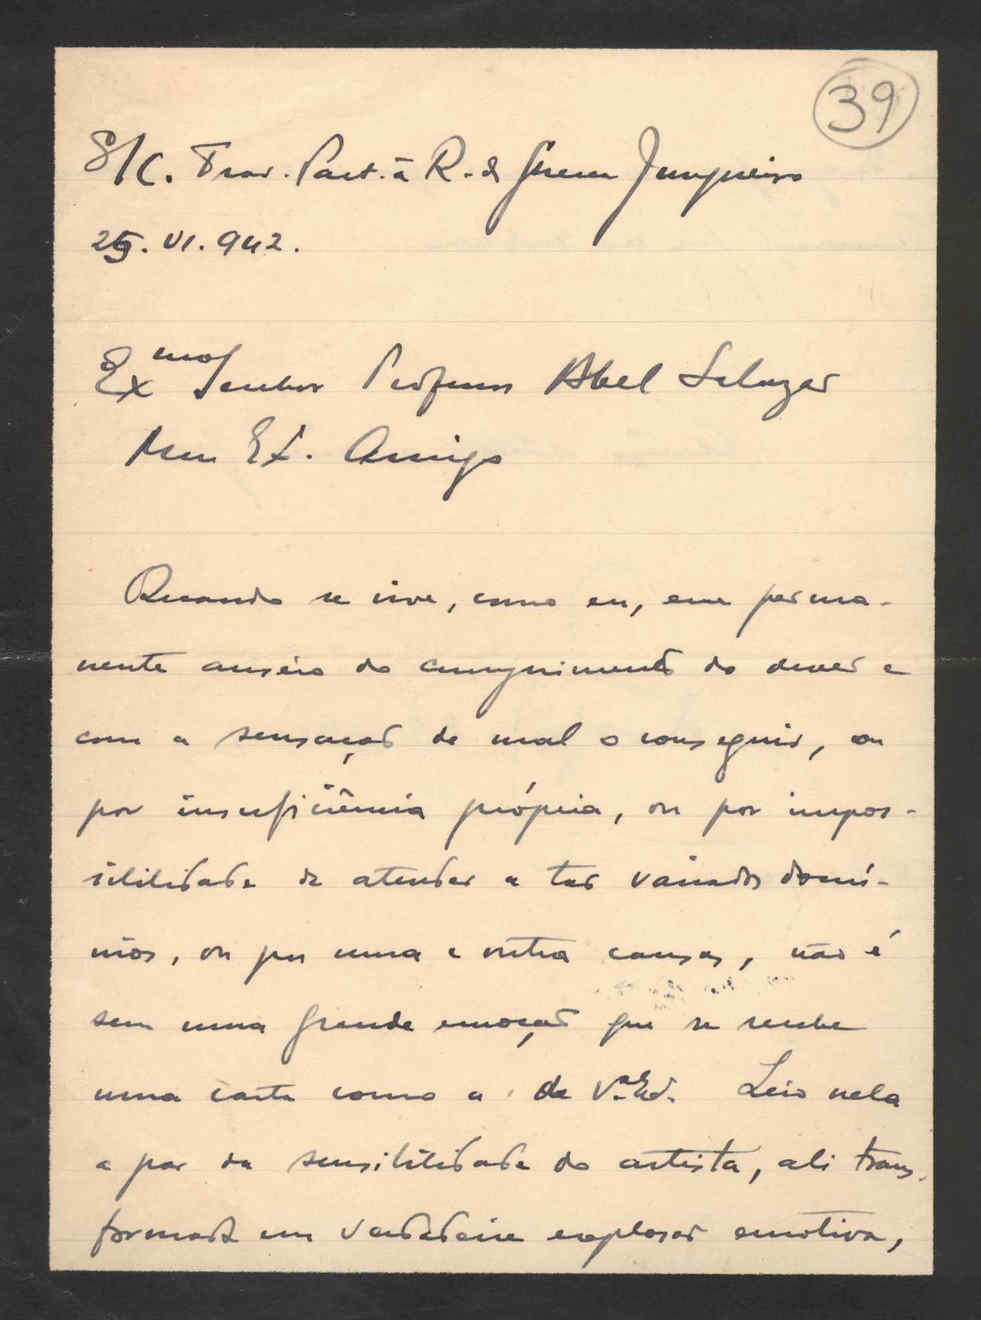 39
S/C. Trav. Part. à R. de Guerra Junqueiro
25. VI. 942.
Ex.mo Senhor Professor Abel Salazar
Meu Ex. Amigo
Quando se vive, como eu, em perma-
nente anseio do cumprimento do dever e
com a sensação de mal o conseguir, ou
por insuficiência própria, ou por impos-
sibilidade de atender a tão variados domí-
nios, ou por uma e outra causas, não é
sem uma grande emoção que se recebe
uma carta como a de V.ª Ex.ª. Leio nela
a par da sensibilidade do artista, ali trans-
formada em verdadeira explosão emotiva,